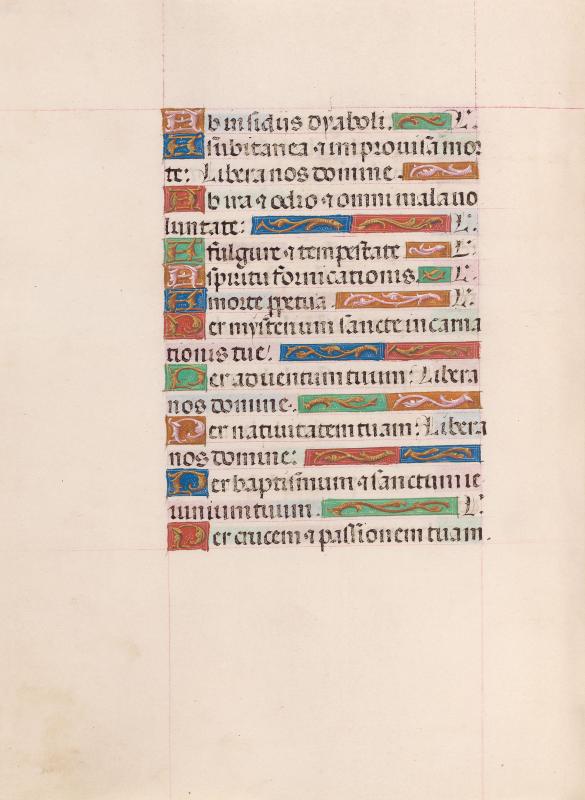 Ab insidiis dyaboli. L.
A subitanea ⁊ improvisa mor
te: Libera nos domine.
Ab ira ⁊ odio ⁊ omni mala uo
luntate: L.
A fulgure ⁊ tempestate L.
A spiritu fornicationis. L.
A morte ppetua. L.
Per mysterium sancte incarna
tionis tue:
Per aduentum tuum: Libera
nos domine.
Per natiuitatem tuam: Libera
nos domine:
Per baptismum ⁊ sanctum ie
iunium tuum. L.
Per crucem ⁊ passionem tuam.